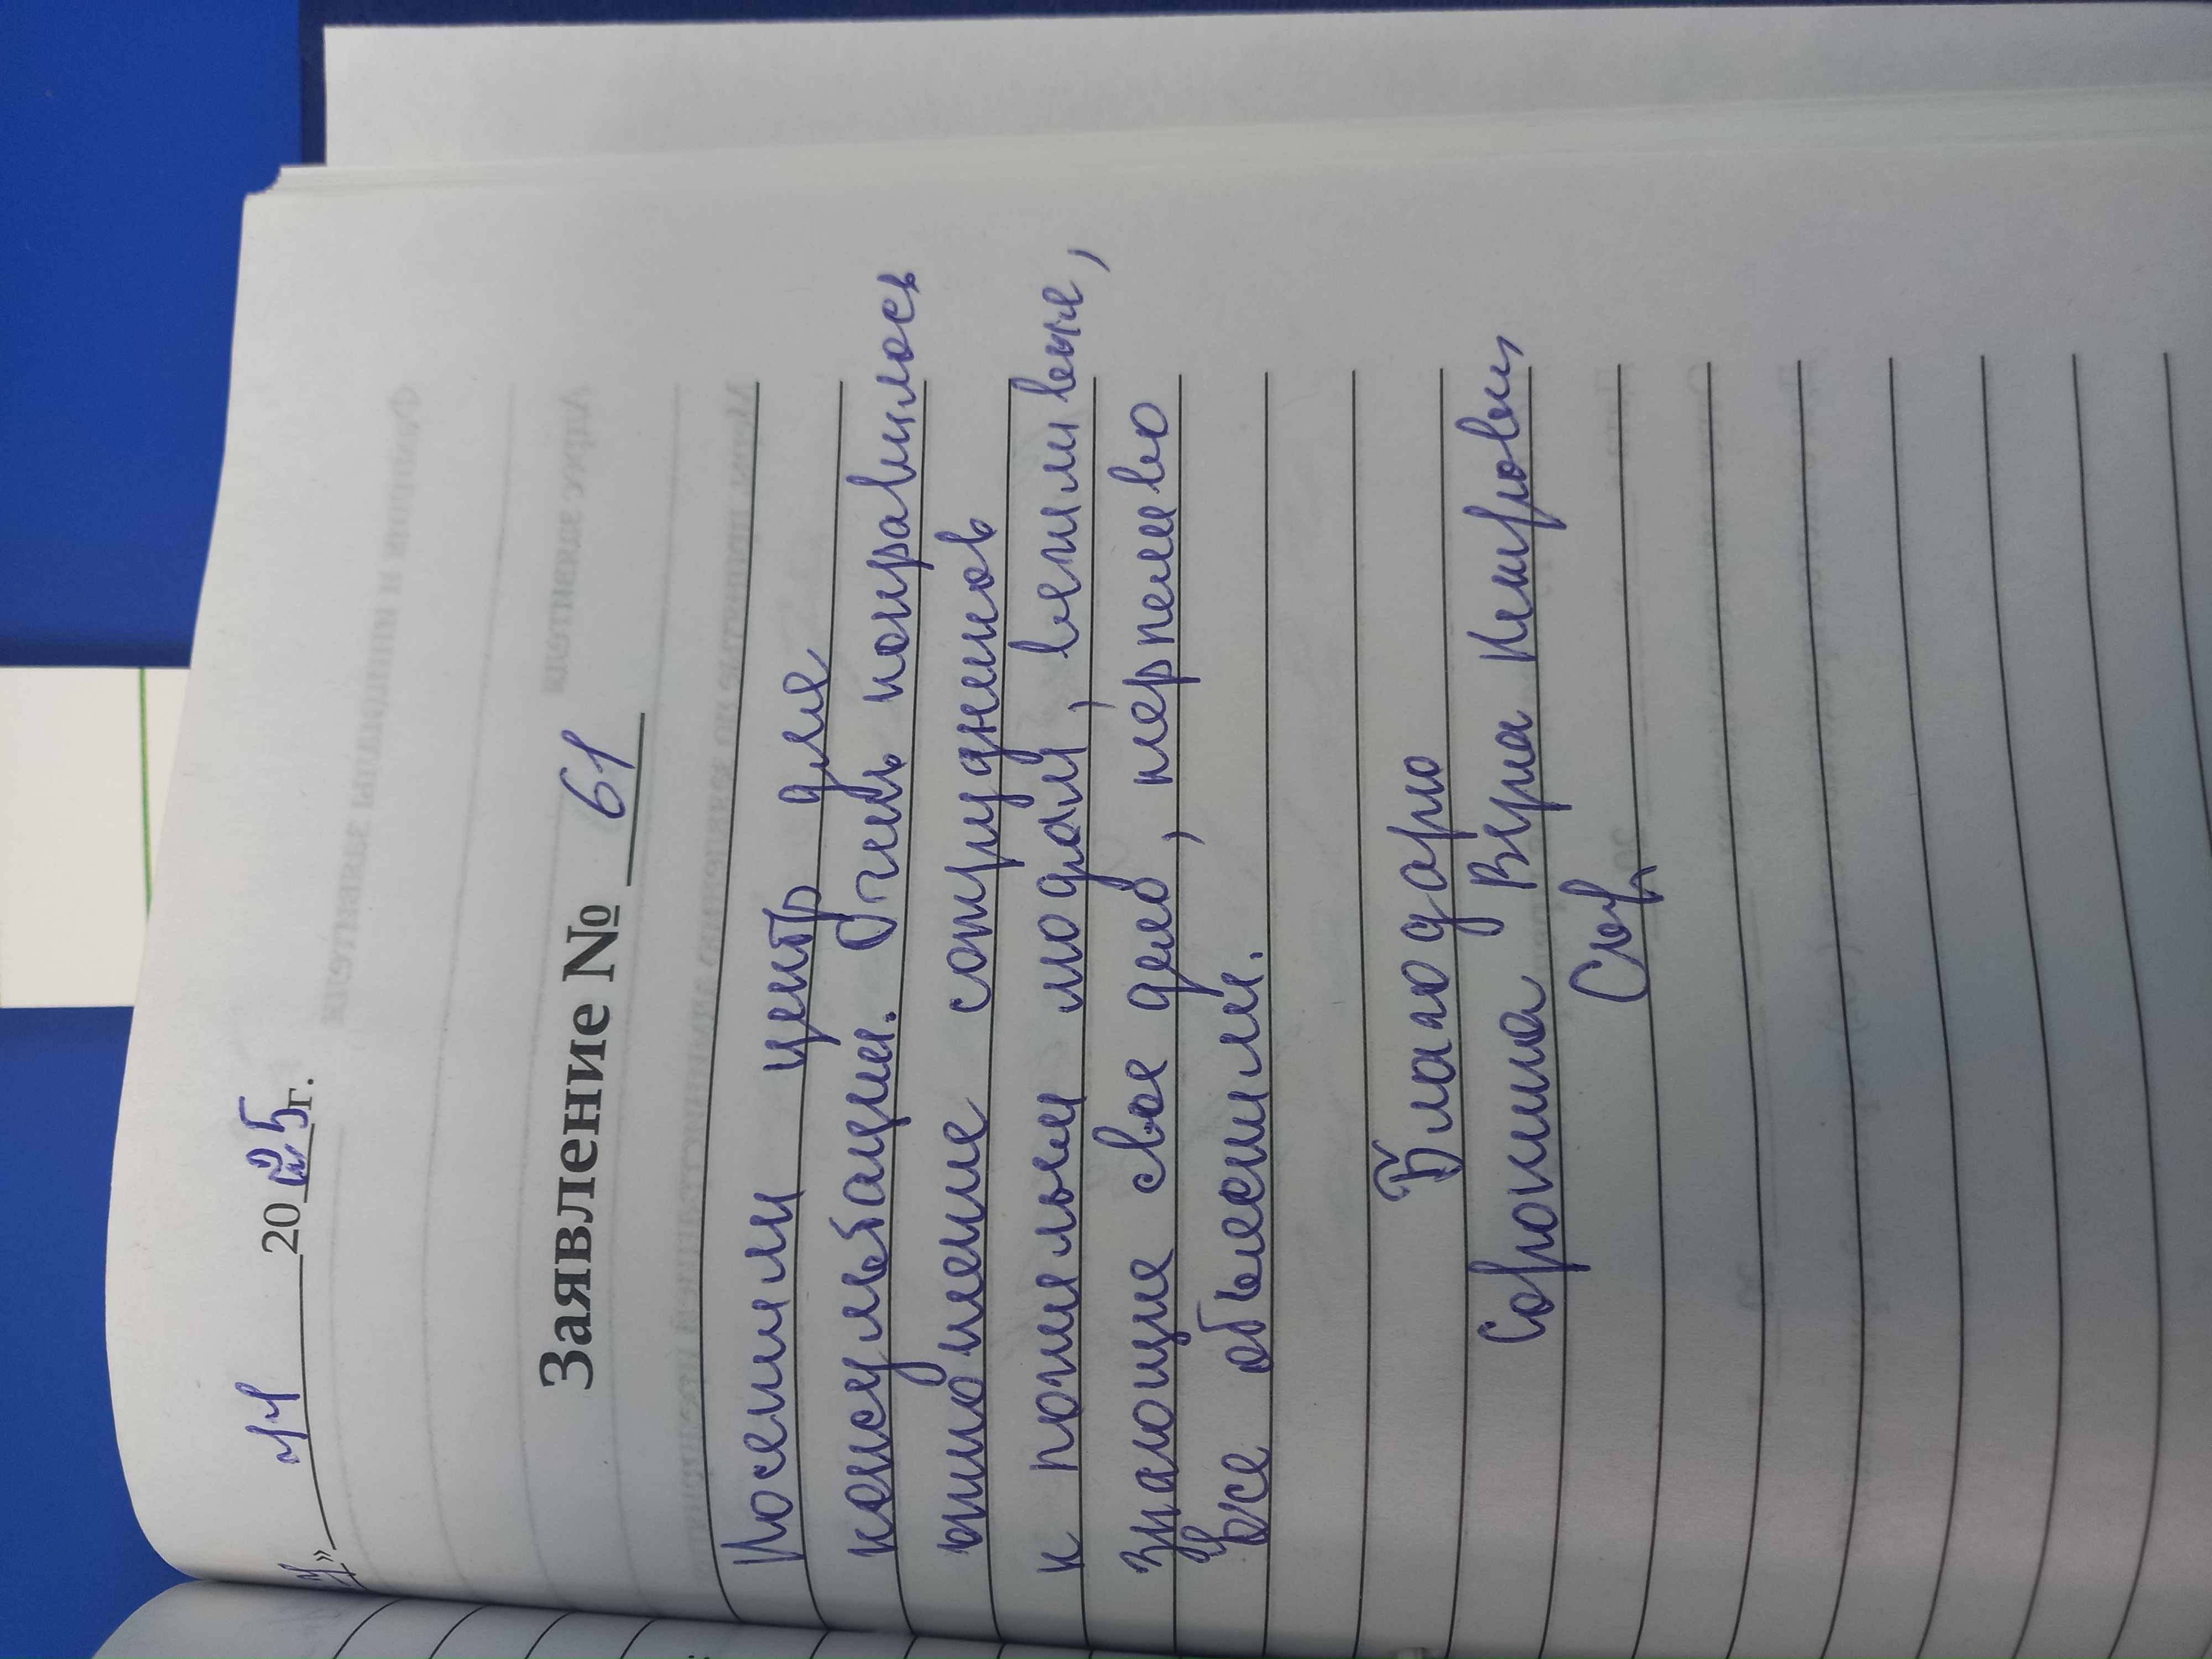 11 2025 г.
Заявление № 61
Посетили центр для
консультации. Очень понравилось
отношение сотрудников
к пожилым людям, вежливые,
знающие свое дело, терпеливо
все объяснили.
Благодарю
Сорокина Вера Петровна